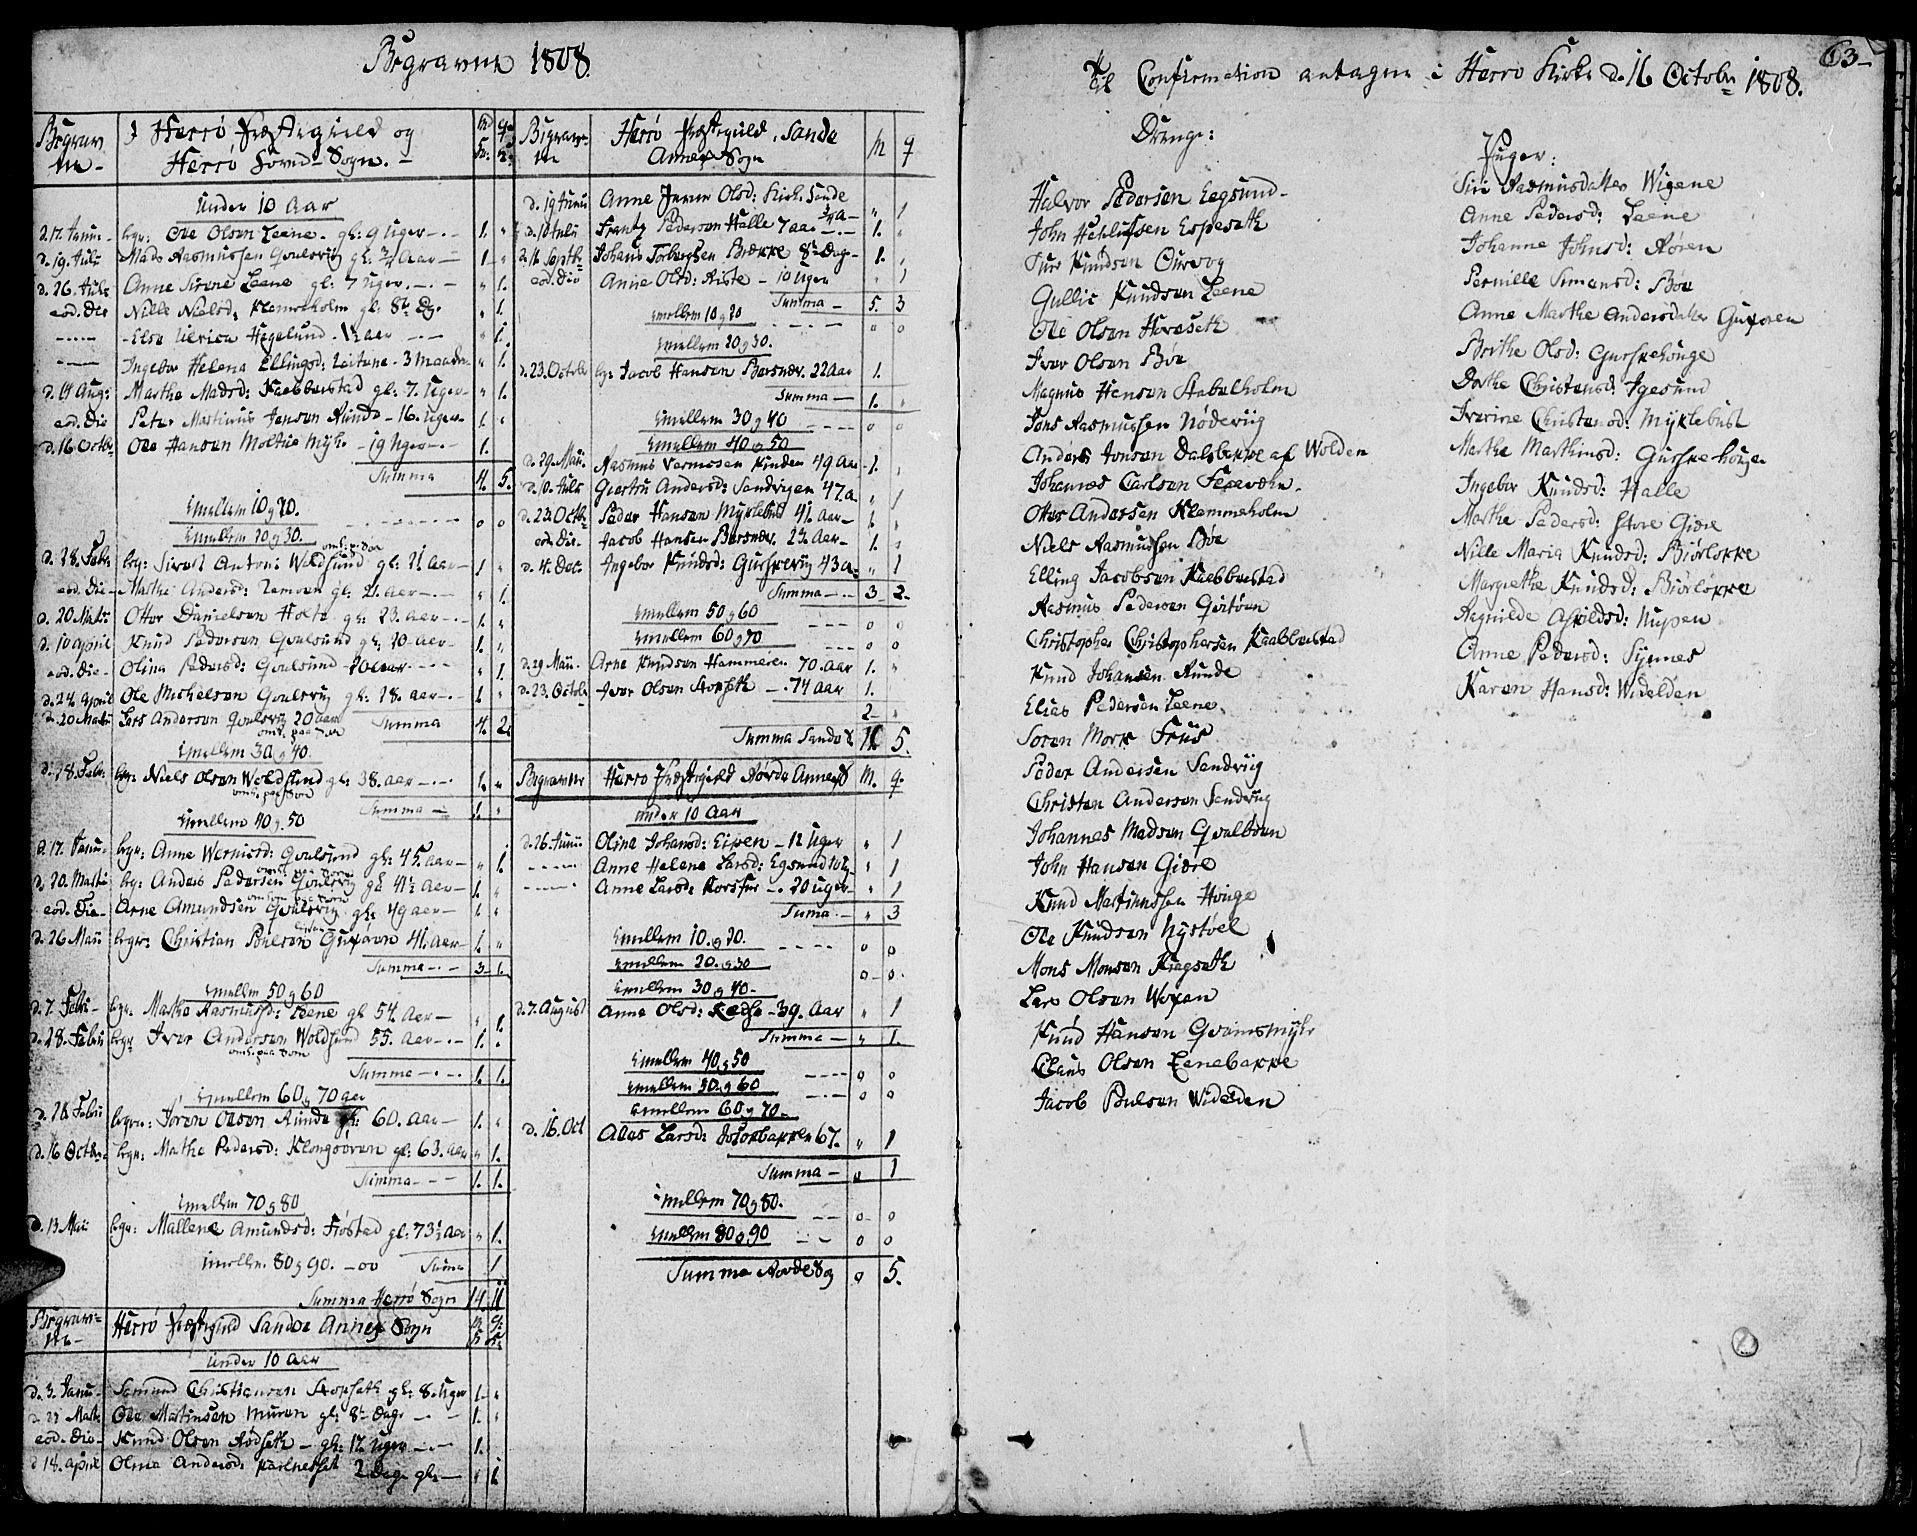 Begravne 1808.
Begrav
ne -
I Herrö Præstegield og
Herrö Hovid Sogn. -
under 10 Aar
d. 17. Janu - begr: Ole Olsen Leene. gl: 9 Uger - 1. "
d. 19. Juli Mads Aasmussen Qvalsvig gl: 3/4 Aar - 1 - "
d. 26. Juli Anne Sirene Leene gl: 7 Uger. - " 1.
eod. die Nille Nielsd: Klemetholm gl: 8t Dg. " 1.
Elsa Ulrica Hegelund. 1/2 aar " 1.
Ingebor Helena Ellingsd: Leitune - 3 maaen " 1.
d. 14 Aug: Marthe Madsd: Kaebbestad gl: 7. Uger - " 1.
eod. die Peter Martinus Jensen Runde - 16. Uger - 1. "
d. 16 Octb: Ole Hansen Moltue Myhr - 19 Uger - 1.
Summa 4. 5.
imellem 10 og 20.
imellem 20 og 30. o o
omk: paa
d. 28. Febr: begr: Sivert Anton: Woldsund gl: 21 Aar - 1 "
eod. die - Mathe Andersd: Remøen gl: 21. Aar - " 1.
d. 20 Marti Otter Danielsen Holte gl: 23. Aar - 1. "
d. 10 April Knud Pedersen Qvalsund gl: 20 Aar - 1. "
eod. die - Olina Pedersd: Qvalsund 20 aar - " 1
d. 24 April Ole Michelsen Qvalsvig gl: 28. aar - 1 "
d. 20 Marti Lars Andersen Qvalsvig 20 aar Summa 4. 2.
imellem 30 og 40.
d. 28. Febr: begr: Niels Olsen Woldsund gl: 38. aar - 1. "
omk. paa Søen
Summa - 1. "
imellem 40 og 50
d. 17. Janu - begr: Anne Wernisd: Qvalsund gl: 45. aar - " 1.
d. 20. Marti begr: Anders Pedersen Qvalsvig gl 41 1/2 aar - 1. "
eod. die - Arne Amundsen Qvalsvig gl: 49 aar - 1. "
d. 26 Maii begr: Christian Poulsen Guxøren 41. aar - 1. "
Summa - 3 1.
imellem 50 og 60
d. 7. Febr - begr: Mathe Aasmussd: Leene gl 54. Aar - " 1.
d. 28. Febr begr Iver Andersen Woldsund 55. aar - 1. "
omk. paa Søen
Summa - 1. 1.
imellem 60 og 70 aar
d. 28. Febr begr: Jøren Olsen Runde gl: 60. Aar - 1. "
d. 16 Octb - begr: Mathe Pedersd: Klongsøren gl: 63. aar " 1.
Summa - 1. 1.
imellem 70 og 80
d. 13. Mai begr: Mallene Amundsd: Frøstad gl: 73 1/2 aar " 1.
imellem 80 og 90. - o o Suma 1
Summa Herrö Sogn 14. 11
Begrav-
ne - Herrö Præstegield Sandøe Annex Sogn
under 10 Aar
d. 3. Janu - Samund Christiansen Stopseth gl: 8. Uger 1. "
d. 27 Mart: Ole Martinsen Muren gl: 8t Dage - 1. "
eod. die - Knud Olsen Rødseth - gl: 12 Uger - 1.
d 18. April Olina Andersd: Karlnesset 2 Dage gl: - " 1
Begrav-
ne Herrö Præstegield Sande
Annex Sogn M q
d. 19 Junii Anne Iverin Olsd: Kirk. Sande
3/4 a - " 1
d. 10 Julii Frantz Pedersen Halle 7 aar - 1. "
d. 16 Septb Johans Torbergsen Brekke 8t Dag - 1. "
eod. die Anne Olsd: Riste - 10 Uger " 1
Summa - 5. 3
imellem 10 og 20 o o
imellem 20 og 30.
d. 23. Octob begr: Jacob Hansen Bersnæs. 22 aar 1.
Summa - 1. "
imellem 30 og 40 o o
imellem 40 og 50
d. 29. Maii. Aasmus Vermosen Kinden 49 Aar - 1. "
d. 10. Julii Giertru Andersd: Sandvigen 47 a " 1
d. 23. Octb Peder Hansen Myklebust 41. aar - 1. "
eod. die - Jacob Hansen Bersnæs. 2 1/2 aar - 1. "
d. 4. Dec. Ingebor Knudsd: Gurskevig 43 a. " 1
Summa - 3 2 -
imellem 50 og 60 o o
imellem 60 og 70 o o
d. 29 Maii. Arne Knudsen Hammeren 70. aar 1. "
d. 23. Octob Iver Olsen Stopseth - 74 aar 1.
2 - "
Summa Sandø S 11 5.
Begravne Herrö Præstegield Røvde Annex S M. q.
under 10 Aar
d. 26. Junii Olina Johansd: Eipen - 12 Uger " 1
Anne Helene Larsd: Egsund 10 Ug " 1
Anne Larsd: Korsfur - 20 Uger - " 1
Suma - " 3
imellem 10. og 20. o o
imellem 20. og 30 o - o -
imellem 30 og 40 -
d. 7. August Anne Olsd: Kedse - 39. Aar " 1
Summa - " 1.
imellem 40 og 50 o o
imellem 50. og 60 o o
imellem 60 og 70 -
d. 16. Oct Aaes Larsd: 67. " 1
Summa - o 1
imellem 70 og 80. o o
imellem 80 og 90 o o
Summa Røvde Sog o 5.
63 -
Til Confirmation antagne i Herrö Kirke d. 16 Octobr 1808.
Drenge:
Halvor Pedersen Eegsund -
John Hehlufsen Espeseth
Ture Knudsen Ourvog
Gullic Knudsen Leene
Ole Olsen Hereseth
Iver Olsen Bøe
Magnus Hansen Stabelholm
Jens Aasmussen Nødeviig
Anders Jonsen Dalsbakke af Wolden
Johannes Carlsen Tesevæn.
Otter Andersen Klemmeholm
Niels Aasmussen Bøe
Elling Jacobsen Kaebbestad
Aasmus Pedersen Qvitøen
Christopher Christophersen Kaebbestad
Knud Johansen Runde
Elias Pedersen Leene.
Soren Mork Friis
Peder Andersen Sandviig
Christen Andersen Sandviig
Johannes Madsen Qvalbeen
John Hansen Giere
Knud Martinussen Houge
Ole Knudsen Nystøel
Mons Monsen Kragseth
Lars Olsen Woxen
Knud Hansen Qvamsmyhr
Claus Olsen Leenebakke
Jacob Poulsen Wideelden
Piger:
Siri Rasmusdatter Wigene
Anne Pedersd: Leene
Johanne Johnsd: Røren
Pernille Simensd: Bøe
Anne Marthe Andersdatter Guxøren
Berthe Olsd: Gurskehouge
Dorthe Christensd: Igesund
Iverine Christensd: Myklebust
Marthe Marthinsd: Gurskehouge
Ingebor Knudsd: Halle
Marthe Pedersd: Store Giere
Nille Maria Knudsd: Biørløkke
Margrethe Knudsd: Biørløkke
Ragnilde Askildsd: Nupen
Anne Pedersd: Synnes
Karen Hansd: Widelden